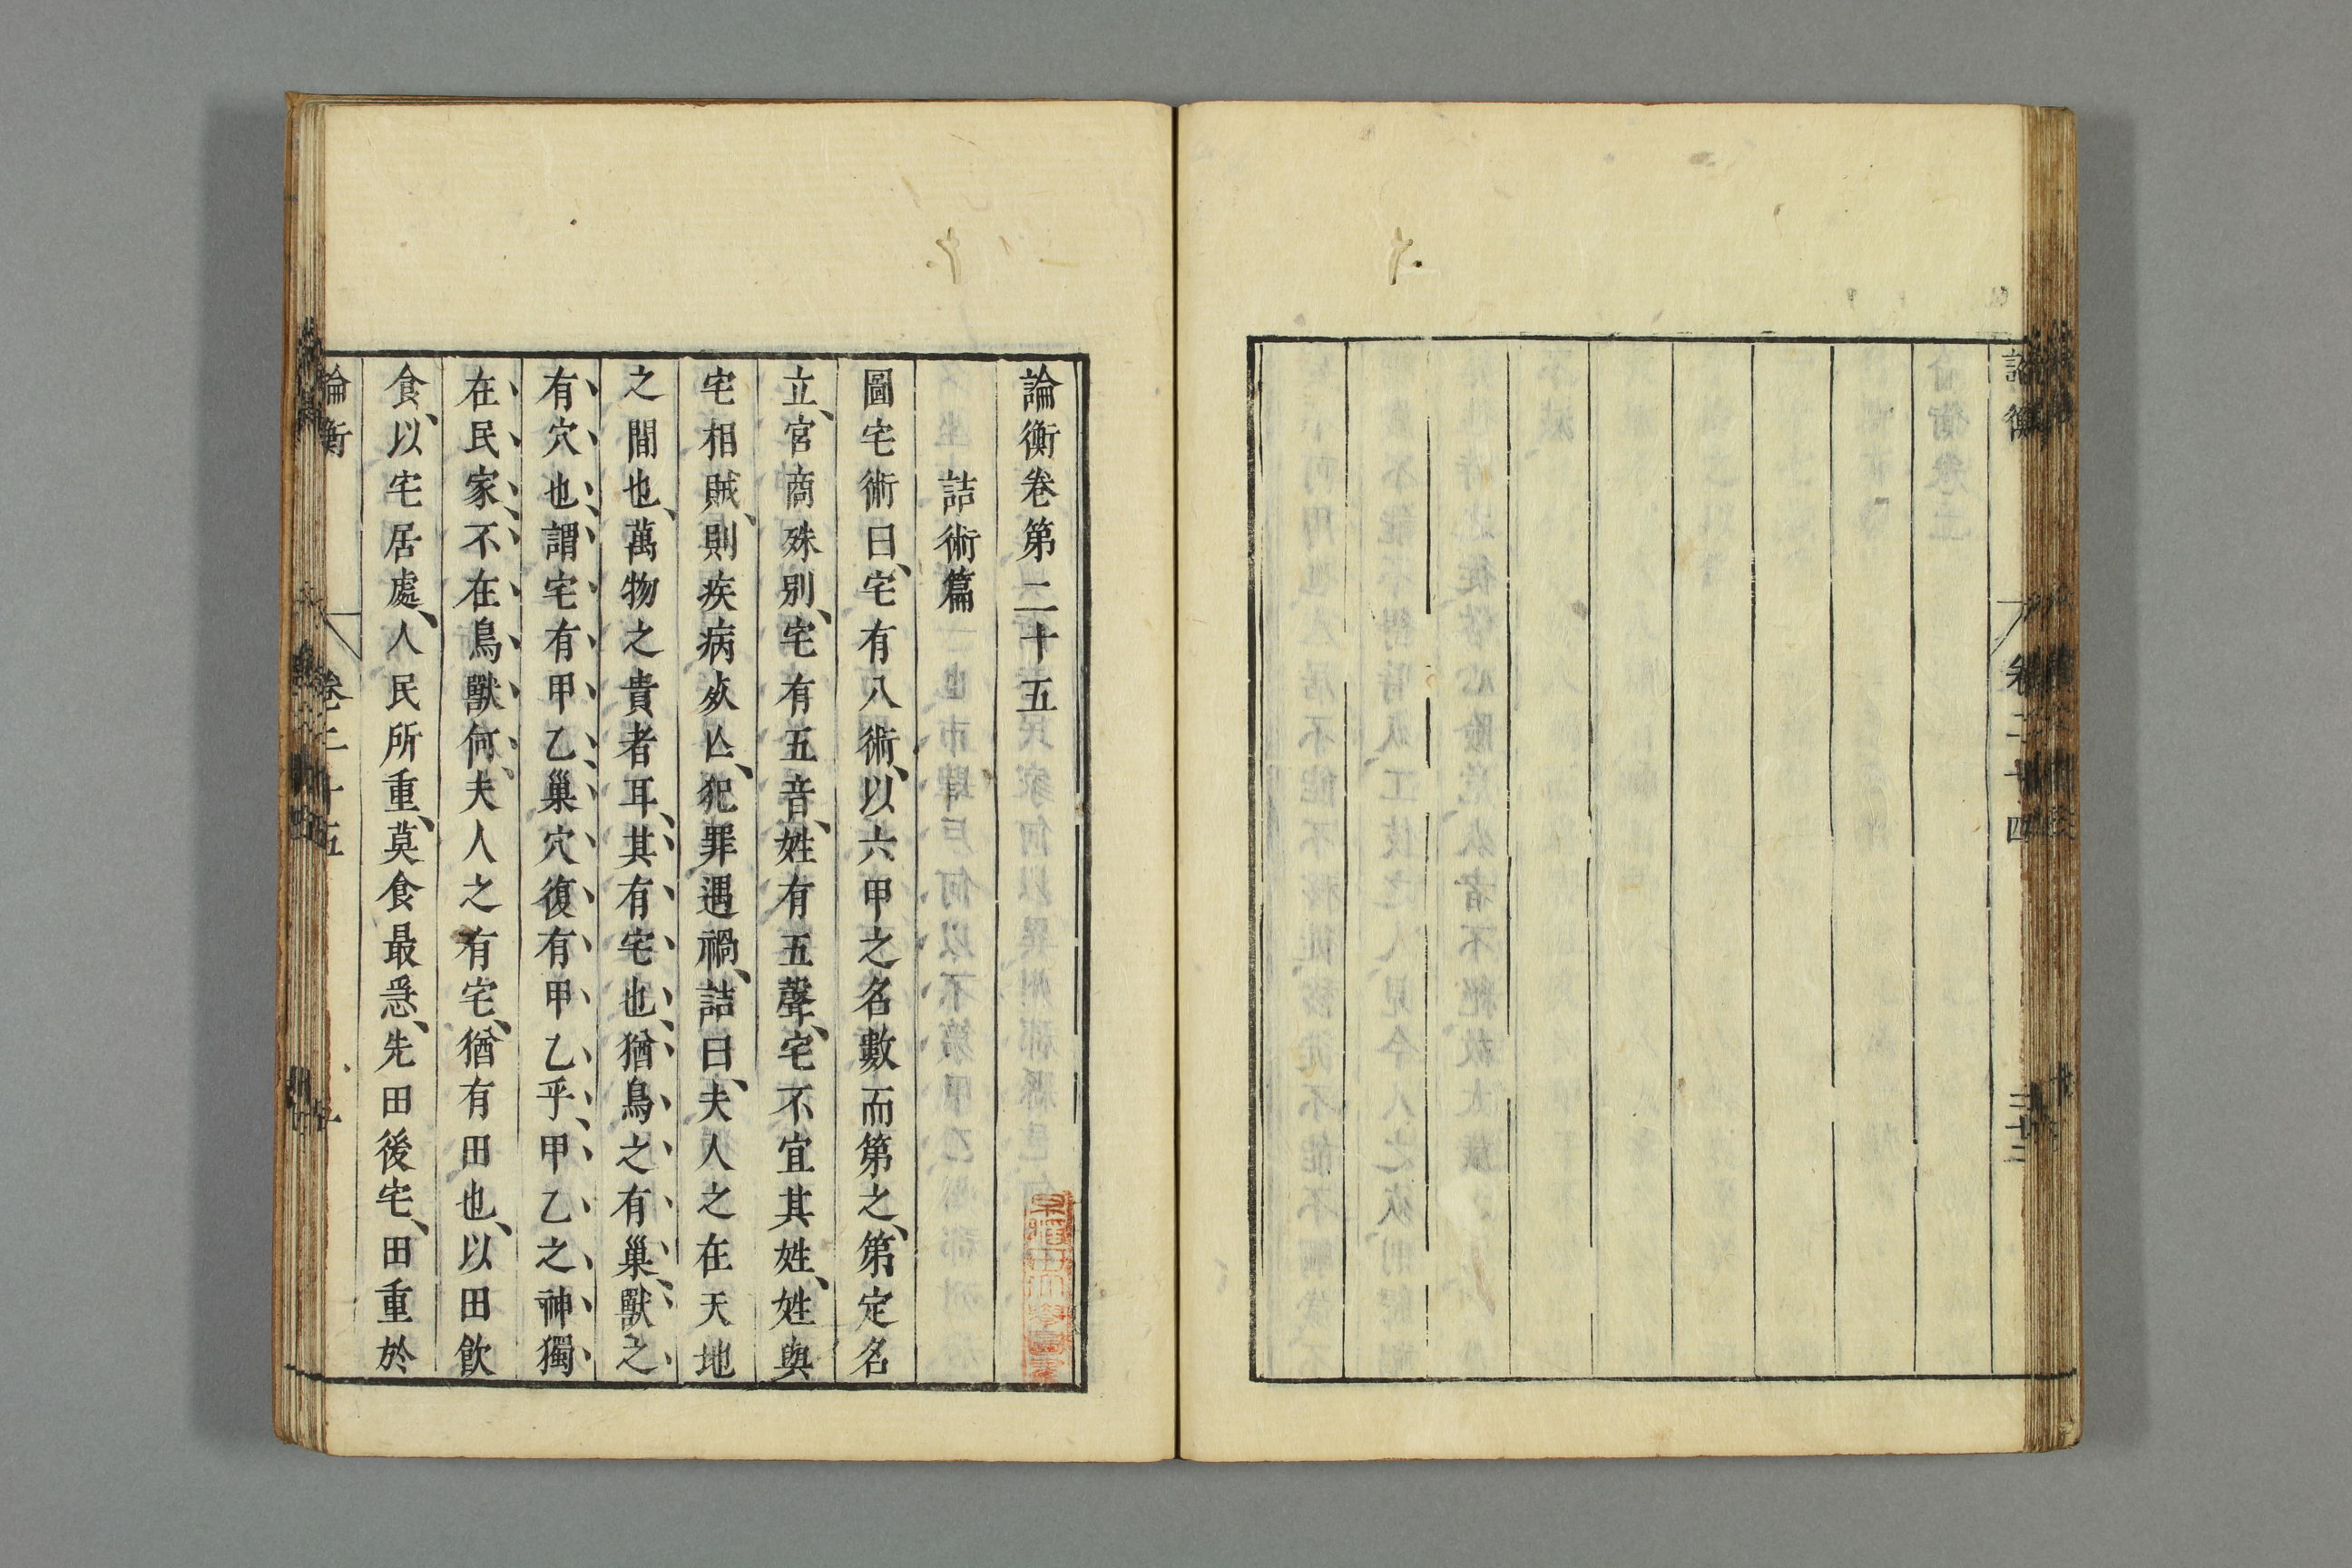 論衡
卷二十四
二十二
論衡卷第二十五
詰術篇
圖宅術曰、宅有八術、以六甲之名數而第之、第定名
立、宮商殊別、宅有五音、姓有五聲、宅不宜其姓、姓與
宅相賊、則疾病死亾、犯罪遇禍、詰曰、夫人之在天地
之間也、萬物之貴者耳、其有宅也、猶鳥之有巢、獸之
有穴也、謂宅有甲乙、巢穴復有甲乙乎、甲乙之神獨
在民家、不在鳥獸何、夫人之有宅、猶有田也、以田飲
食、以宅居處、人民所重、莫食最急、先田後宅、田重於
論衡
卷二十五